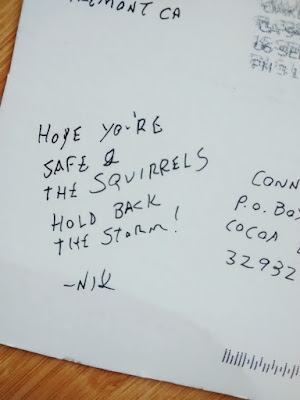 CA
06 SEP
PM 3 L
HOPE YOU'RE
SAFE &
THE SQUIRRELS
HOLD BACK
THE STORM!
-NIK
CONN
P.O. BOX
COCOA
32932